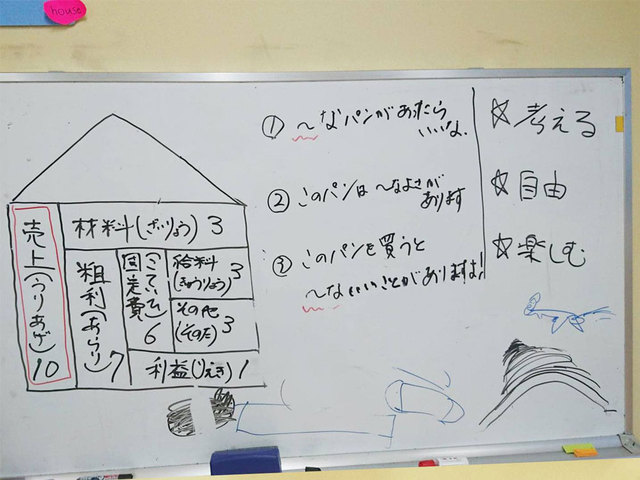 house
売上(うりあげ)10
材料(ざいりょう)3
粗利(あらり)7
固定費(こていひ)6
給料(きゅうりょう)3
その他(そのた)3
利益(りえき)1
① 〜なパンがあったら
いいな。
② このパンは〜なよさが
あります
③ このパンを買うと
〜ないいことがありますよ!
☆考える
☆自由
☆楽しむ